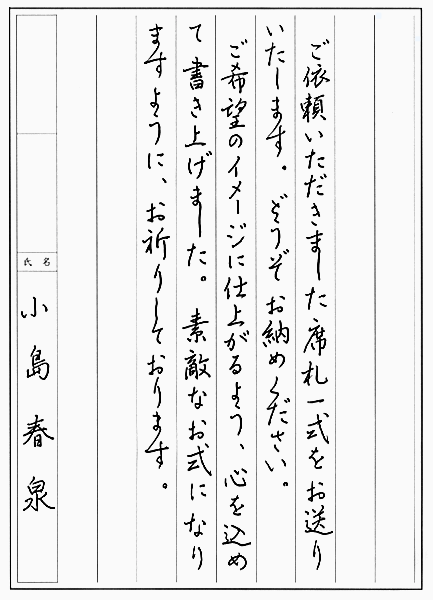 ご依頼いただきました席札一式をお送り
いたします。どうぞお納めください。
ご希望のイメージに仕上がるよう、心を込め
て書き上げました。素敵なお式になり
ますように、お祈りしております。
氏名
小島春泉